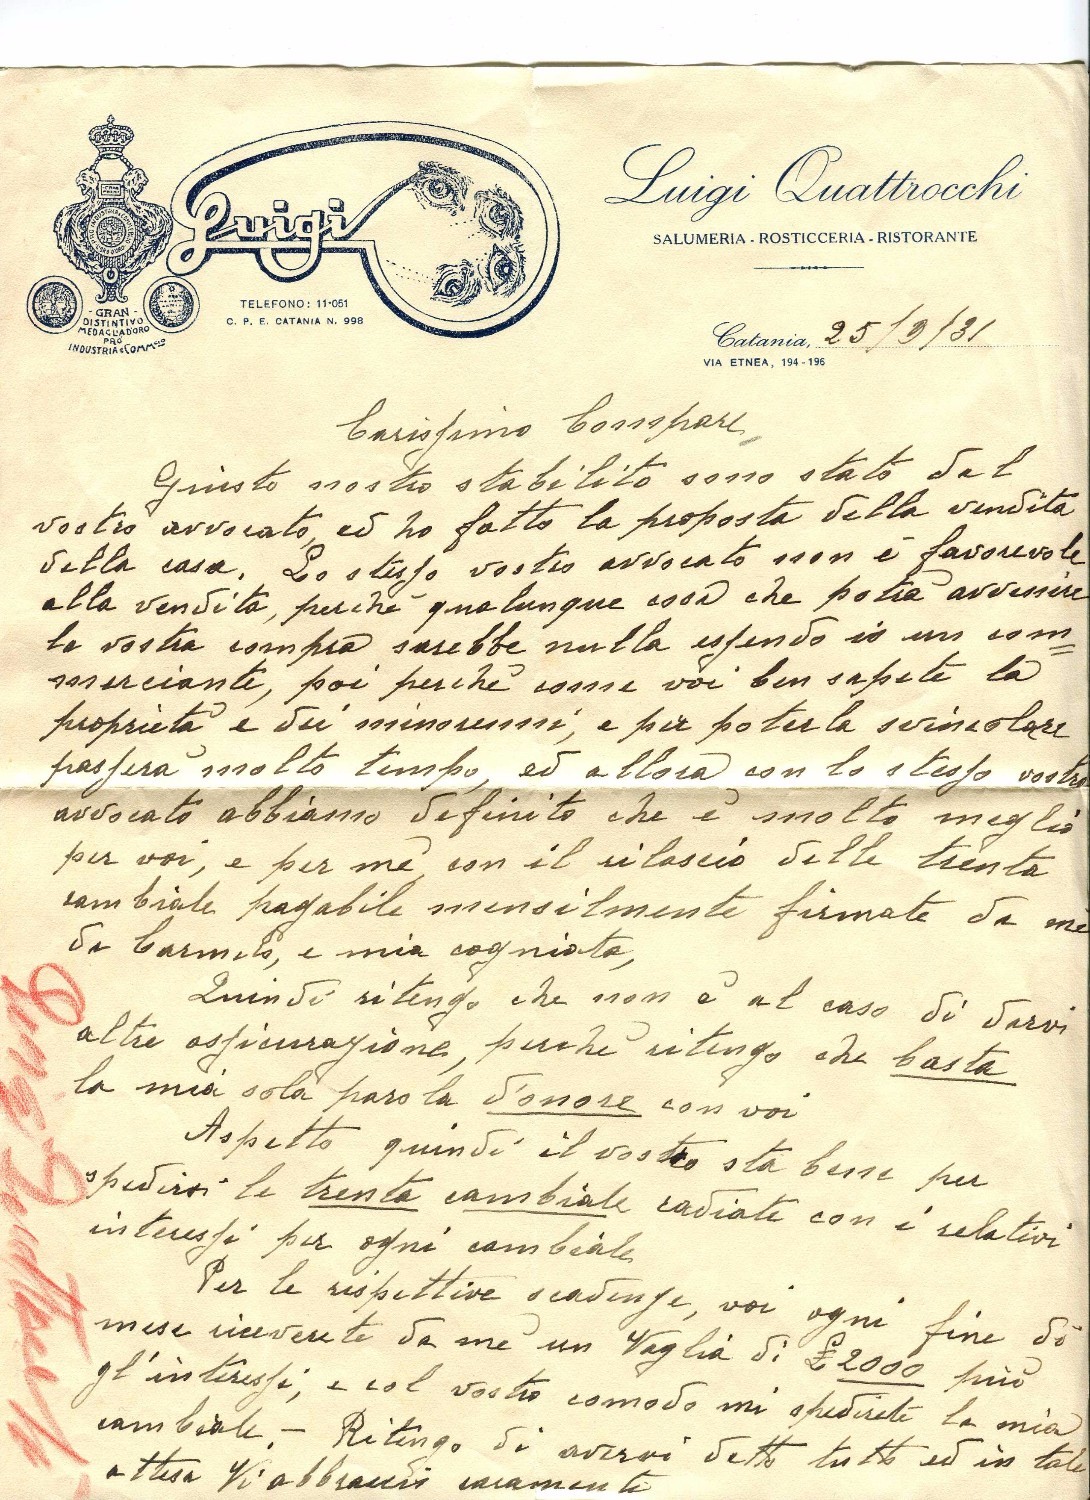 Luigi
Luigi Quattrocchi
SALUMERIA - ROSTICCERIA - RISTORANTE
TELEFONO: 11-051
C. P. E. CATANIA N. 998
- GRAN -
DISTINTIVO
MEDAGLIA D'ORO
PRO
INDUSTRIA e COMM.cio
Catania, 25/9/31
VIA ETNEA, 194-196
Carissimo Compare
Giusto nostro stabilito sono stato dal
vostro avvocato, ed ho fatto la proposta della vendita
della casa. Lo stesso vostro avvocato non è favorevole
alla vendita, perchè qualunque cosa che potrà avvenire
la vostra compra sarebbe nulla essendo io un com=
merciante, poi perchè come voi ben sapete la
proprietà e dei minorenni, e per poterla svincolare
passerà molto tempo, ed allora con lo stesso vostro
avvocato abbiamo definito che è molto meglio
per voi, e per me, con il rilascio delle trenta
cambiale pagabile mensilmente firmate da me
da Carmelo, e mia cogniata,
Quindi ritengo che non è al caso di darvi
altre assicurazione, perchè ritengo che basta
la mia sola parola d'onore con voi
Aspetto quindi il vostro sta bene per
spedirvi le trenta cambiale radiate con i relativi
interessi per ogni cambiale
Per le rispettive scadenze, voi ogni fine di
mese riceverete da me un Vaglia di £ 2000 più
gl'interessi, e col vostro comodo mi spedirete la mia
cambiale. - Ritengo di avervi detto tutto ed in tale
attesa Vi abbraccio caramente